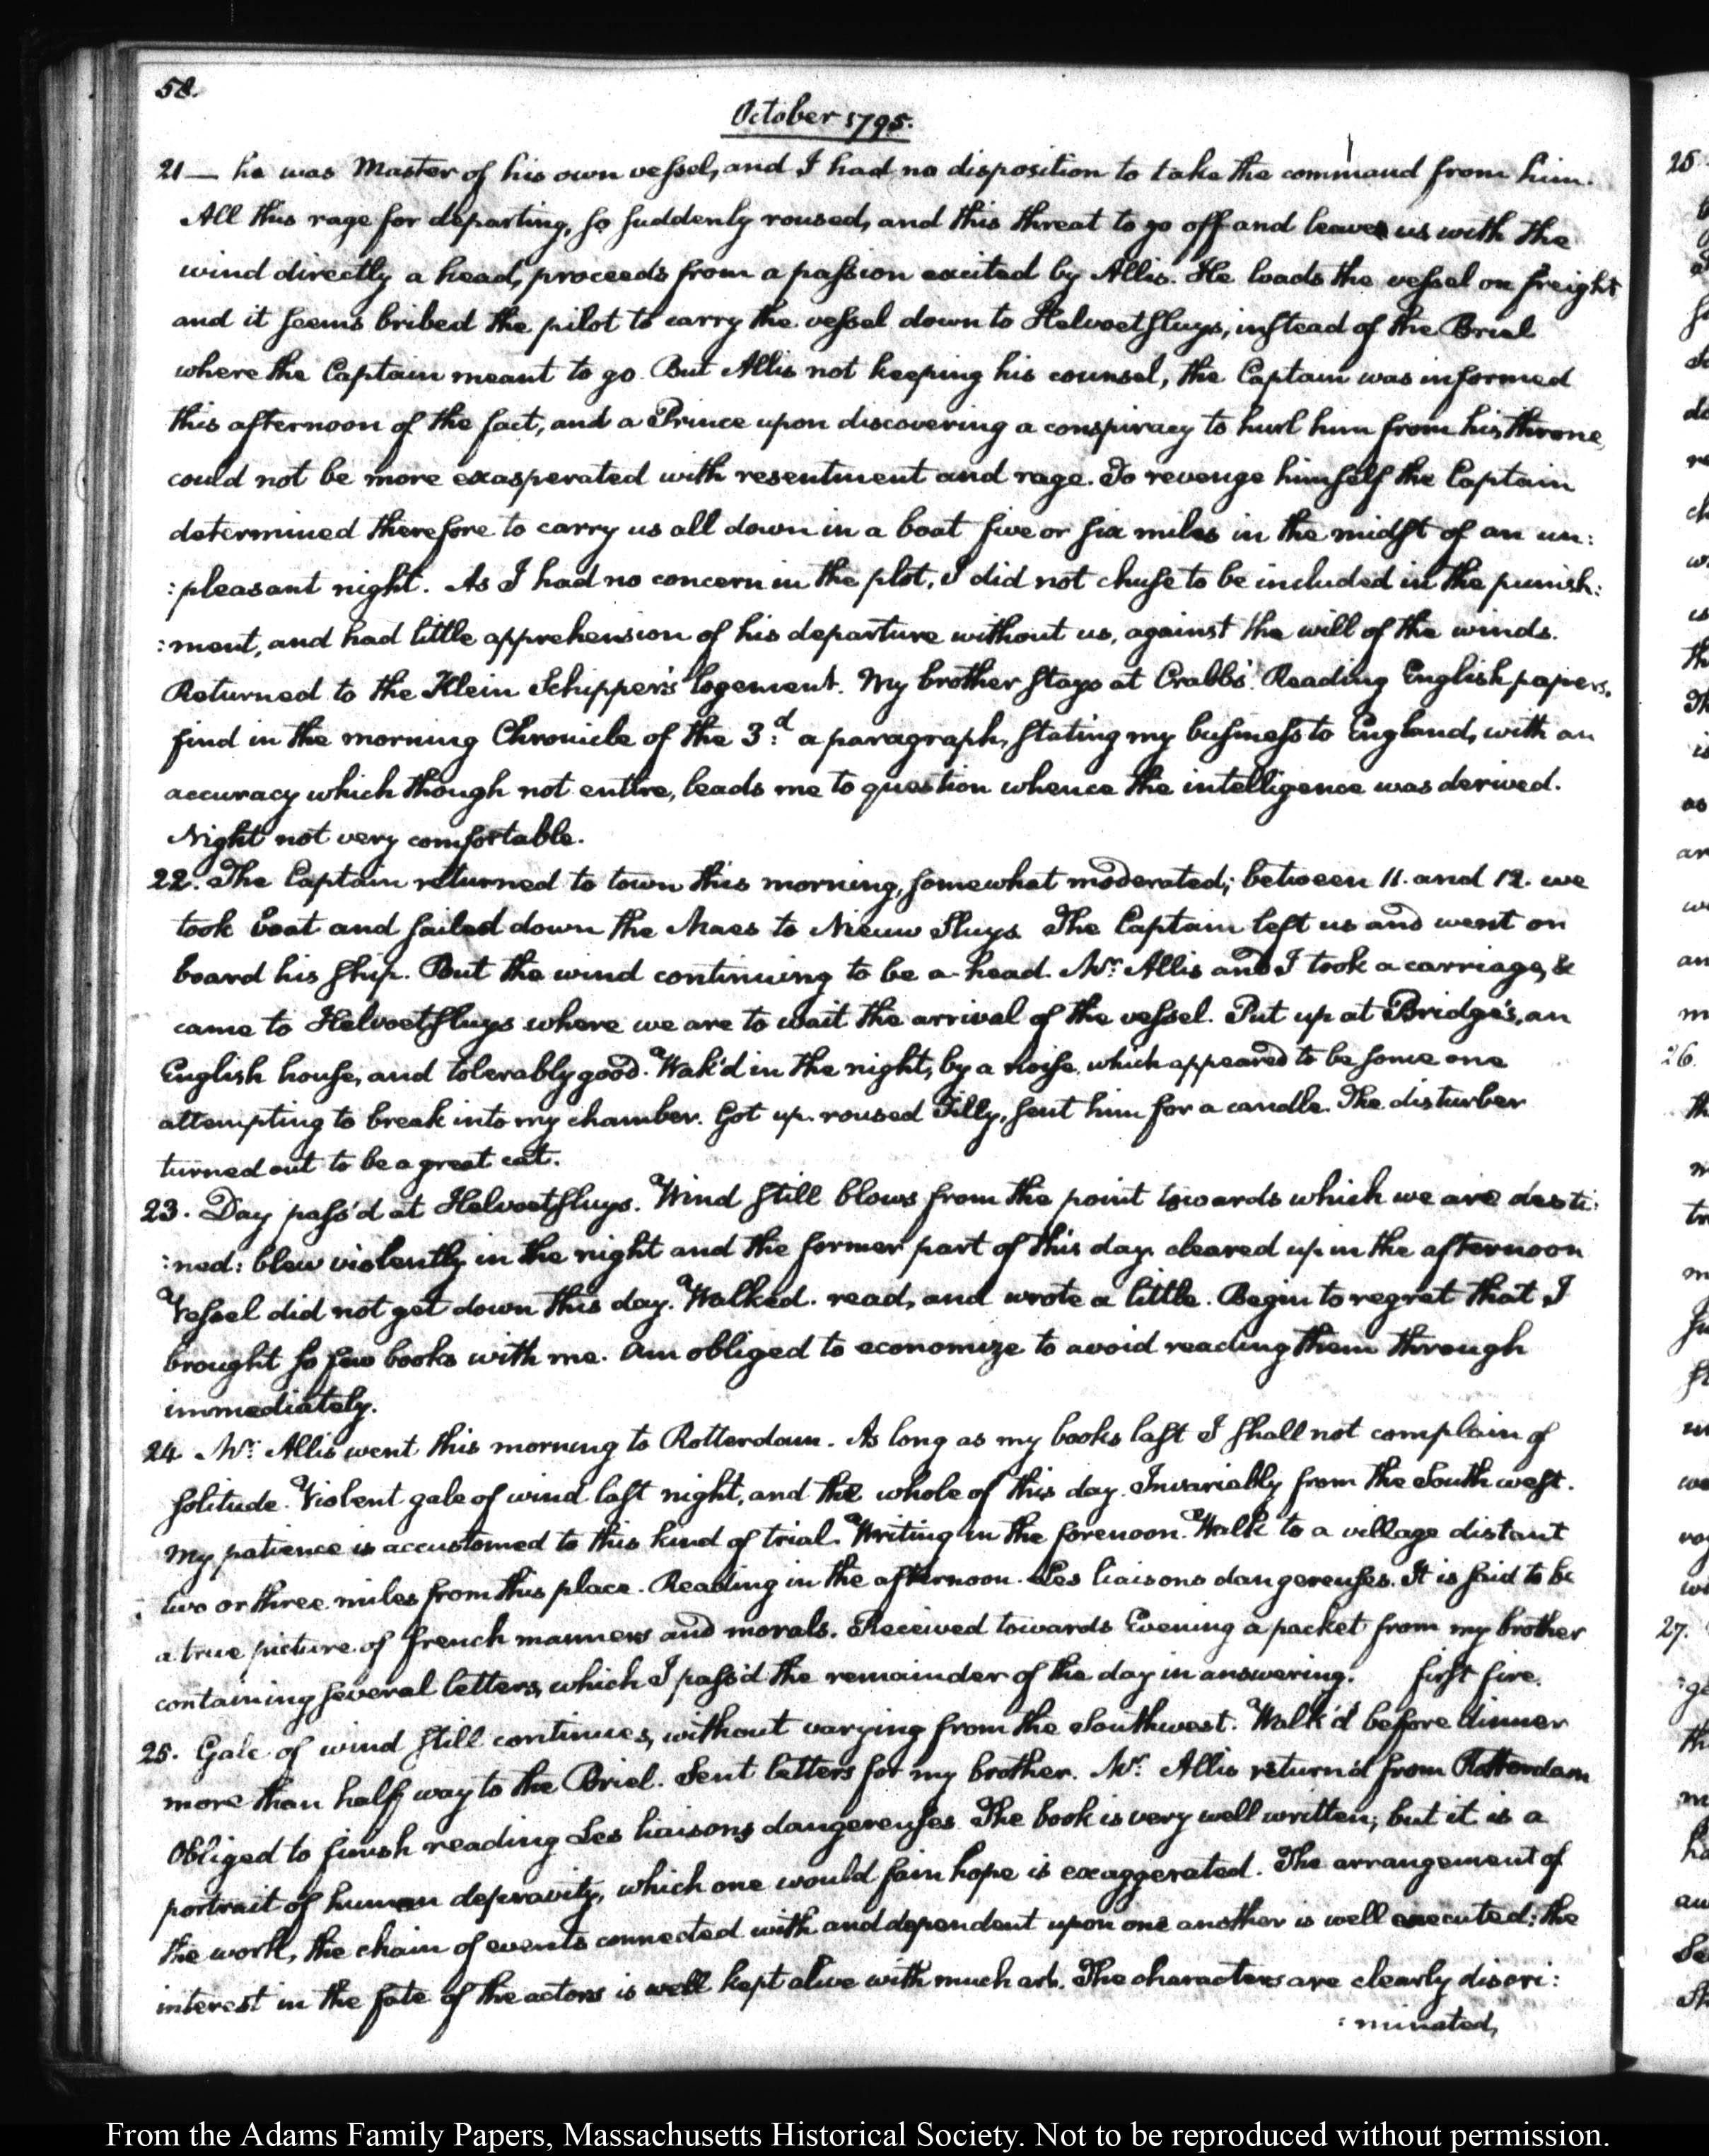 58.
October 1795.
21 — he was Master of his own vessel, and I had no disposition to take the command from him.
All this rage for departing, so suddenly roused, and this threat to go off and leave us with the
wind directly a head, proceeds from a passion excited by Allis. He loads the vessel on freight
and it seems bribed the pilot to carry the vessel down to Helvoetsluys, instead of the Briel
where the Captain meant to go. But Allis not keeping his counsel, the Captain was informed
this afternoon of the fact, and a Prince upon discovering a conspiracy to hurl him from his throne,
could not be more exasperated with resentment and rage. To revenge himself the Captain
determined therefore to carry us all down in a boat five or six miles in the midst of an un:
:pleasant night. As I had no concern in the plot, I did not chuse to be included in the punish:
:ment, and had little apprehension of his departure without us, against the will of the winds.
Returned to the Klein Schippers' logement. My brother stays at Crabb's. Reading English papers,
find in the morning Chronicle of the 3:d a paragraph, stating my business to England, with an
accuracy which though not entire, leads me to question whence the intelligence was derived.
Night not very comfortable.
22. The Captain returned to town this morning, somewhat moderated; between 11. and 12. we
took boat and sailed down the Maes to Nieuw Sluys. The Captain left us and went on
board his ship. But the wind continuing to be a-head. Mr: Allis and I took a carriage, &
came to Helvoetsluys where we are to wait the arrival of the vessel. Put up at Bridge's, an
English house, and tolerably good. Wak'd in the night, by a noise, which appeared to be some one
attempting to break into my chamber. Got up. roused Tilly, sent him for a candle. The disturber
turned out to be a great cat.
23. Day pass'd at Helvoetsluys. Wind still blows from the point towards which we are desti:
:ned: blew violently in the night and the former part of this day. cleared up in the afternoon
Vessel did not get down this day. Walked. read, and wrote a little. Begin to regret that I
brought so few books with me. Am obliged to economize to avoid reading them through
immediately.
24. Mr: Allis went this morning to Rotterdam. As long as my books last I shall not complain of
solitude. Violent gale of wind last night, and the whole of this day. Invariably from the South west.
My patience is accustomed to this kind of trial. Writing in the forenoon. Walk to a village distant
two or three miles from this place. Reading in the afternoon. Les liaisons dangereuses. It is said to be
a true picture of french manners and morals. Received towards Evening a packet from my brother
containing several letters, which I pass'd the remainder of the day in answering. first fire.
25. Gale of wind still continues, without varying from the Southwest. Walk'd before dinner
more than half way to the Briel. Sent letters for my brother. Mr: Allis return'd from Rotterdam
Obliged to finish reading Les liaisons dangereuses. The book is very well written; but it is a
portrait of human depravity, which one would fain hope is exaggerated. The arrangement of
the work, the chain of events connected with and dependent upon one another is well executed: the
interest in the fate of the actors is well kept alive with much art. The characters are clearly discri:
:minated,
25
26.
27.
From the Adams Family Papers, Massachusetts Historical Society. Not to be reproduced without permission.